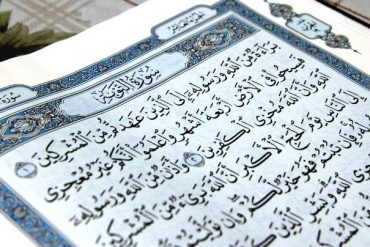 سُورَةُ التَّوْبَةِ
بَرَآءَةٌ مِّنَ ٱللَّهِ وَرَسُولِهِۦٓ إِلَى ٱلَّذِينَ عَٰهَدتُّم مِّنَ ٱلْمُشْرِكِينَ ١
فَسِيحُوا۟ فِى ٱلْأَرْضِ أَرْبَعَةَ أَشْهُرٍ وَٱعْلَمُوٓا۟ أَنَّكُمْ غَيْرُ مُعْجِزِى
ٱللَّهِ وَأَنَّ ٱللَّهَ مُخْزِى ٱلْكَٰفِرِينَ ٢ وَأَذَٰنٌ مِّنَ ٱللَّهِ وَرَسُولِهِۦٓ
إِلَى ٱلنَّاسِ يَوْمَ ٱلْحَجِّ ٱلْأَكْبَرِ أَنَّ ٱللَّهَ بَرِىٓءٌ مِّنَ ٱلْمُشْرِكِينَ
فَهُوَ خَيْرٌ لَّكُمْ وَإِن
ٱللَّهِ وَبَشِّرِ ٱلَّذِينَ